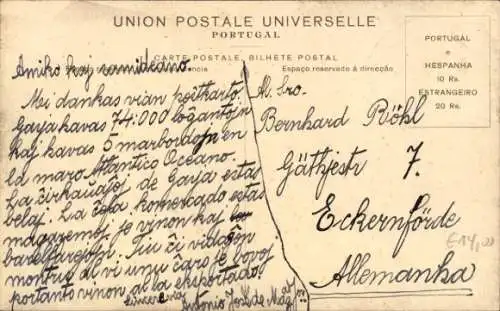 UNION POSTALE UNIVERSELLE
PORTUGAL
CARTE POSTALE, BILHETE POSTAL
Espaço reservado á direcção
PORTUGAL
e
HESPANHA
10 Rs.
ESTRANGEIRO
20 Rs.
Amiko kaj samideano
Mi dankas vian poŝtkarto
Gaja havas 74:000 loĝantojn
kaj havas 5 marbordojn en
la maro Atlantico Oceano.
La ĉirkaŭaĵoj de Gaja estas
belaj. La ĉefa komercado estas
magazenoj je vinon kaj
barelfarejojn. Tiu ĉi vidaĵon
montras al vi unu ĉaro je bovoj
portanto vinon al la eksportado.
Sincere via
Antonio José de
Al Sro.
Bernhard Röhl
Gäthjestr 7.
Eckernförde
Allemanha
£14,00